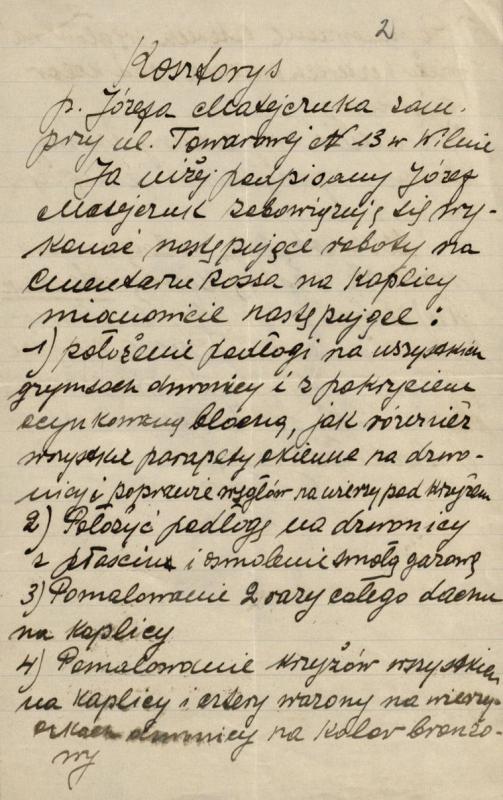 2
Kosztorys
p. Józefa Matejczuka zam.
przy ul. Towarowej N 13 w Wilnie
Ja niżej podpisany Józef
Matejczuk zobowięzuję się wy-
konać następujęce roboty na
Cmentarzu Rossa na Kaplicy
mianowicie następujęce:
1) położenie podłogi na wszystkich
grzymsach dzwonicy i z pokryciem
ocynkowaną blachą, jak również
wszystkie parapety okienne na dzwo-
nicy i poprawie węgłów na wierzy pod krzyżem
2) Położyć podłogę na dzwonicy
i osmolenie smołą gazową
3) Pomalowanie 2 razy całego dachu
na kaplicy
4) Pomalowanie krzyżów wszystkich
na kaplicy i cztery wazony na wierzy-
czkach dzwonicy na kolor bronzo-
wy